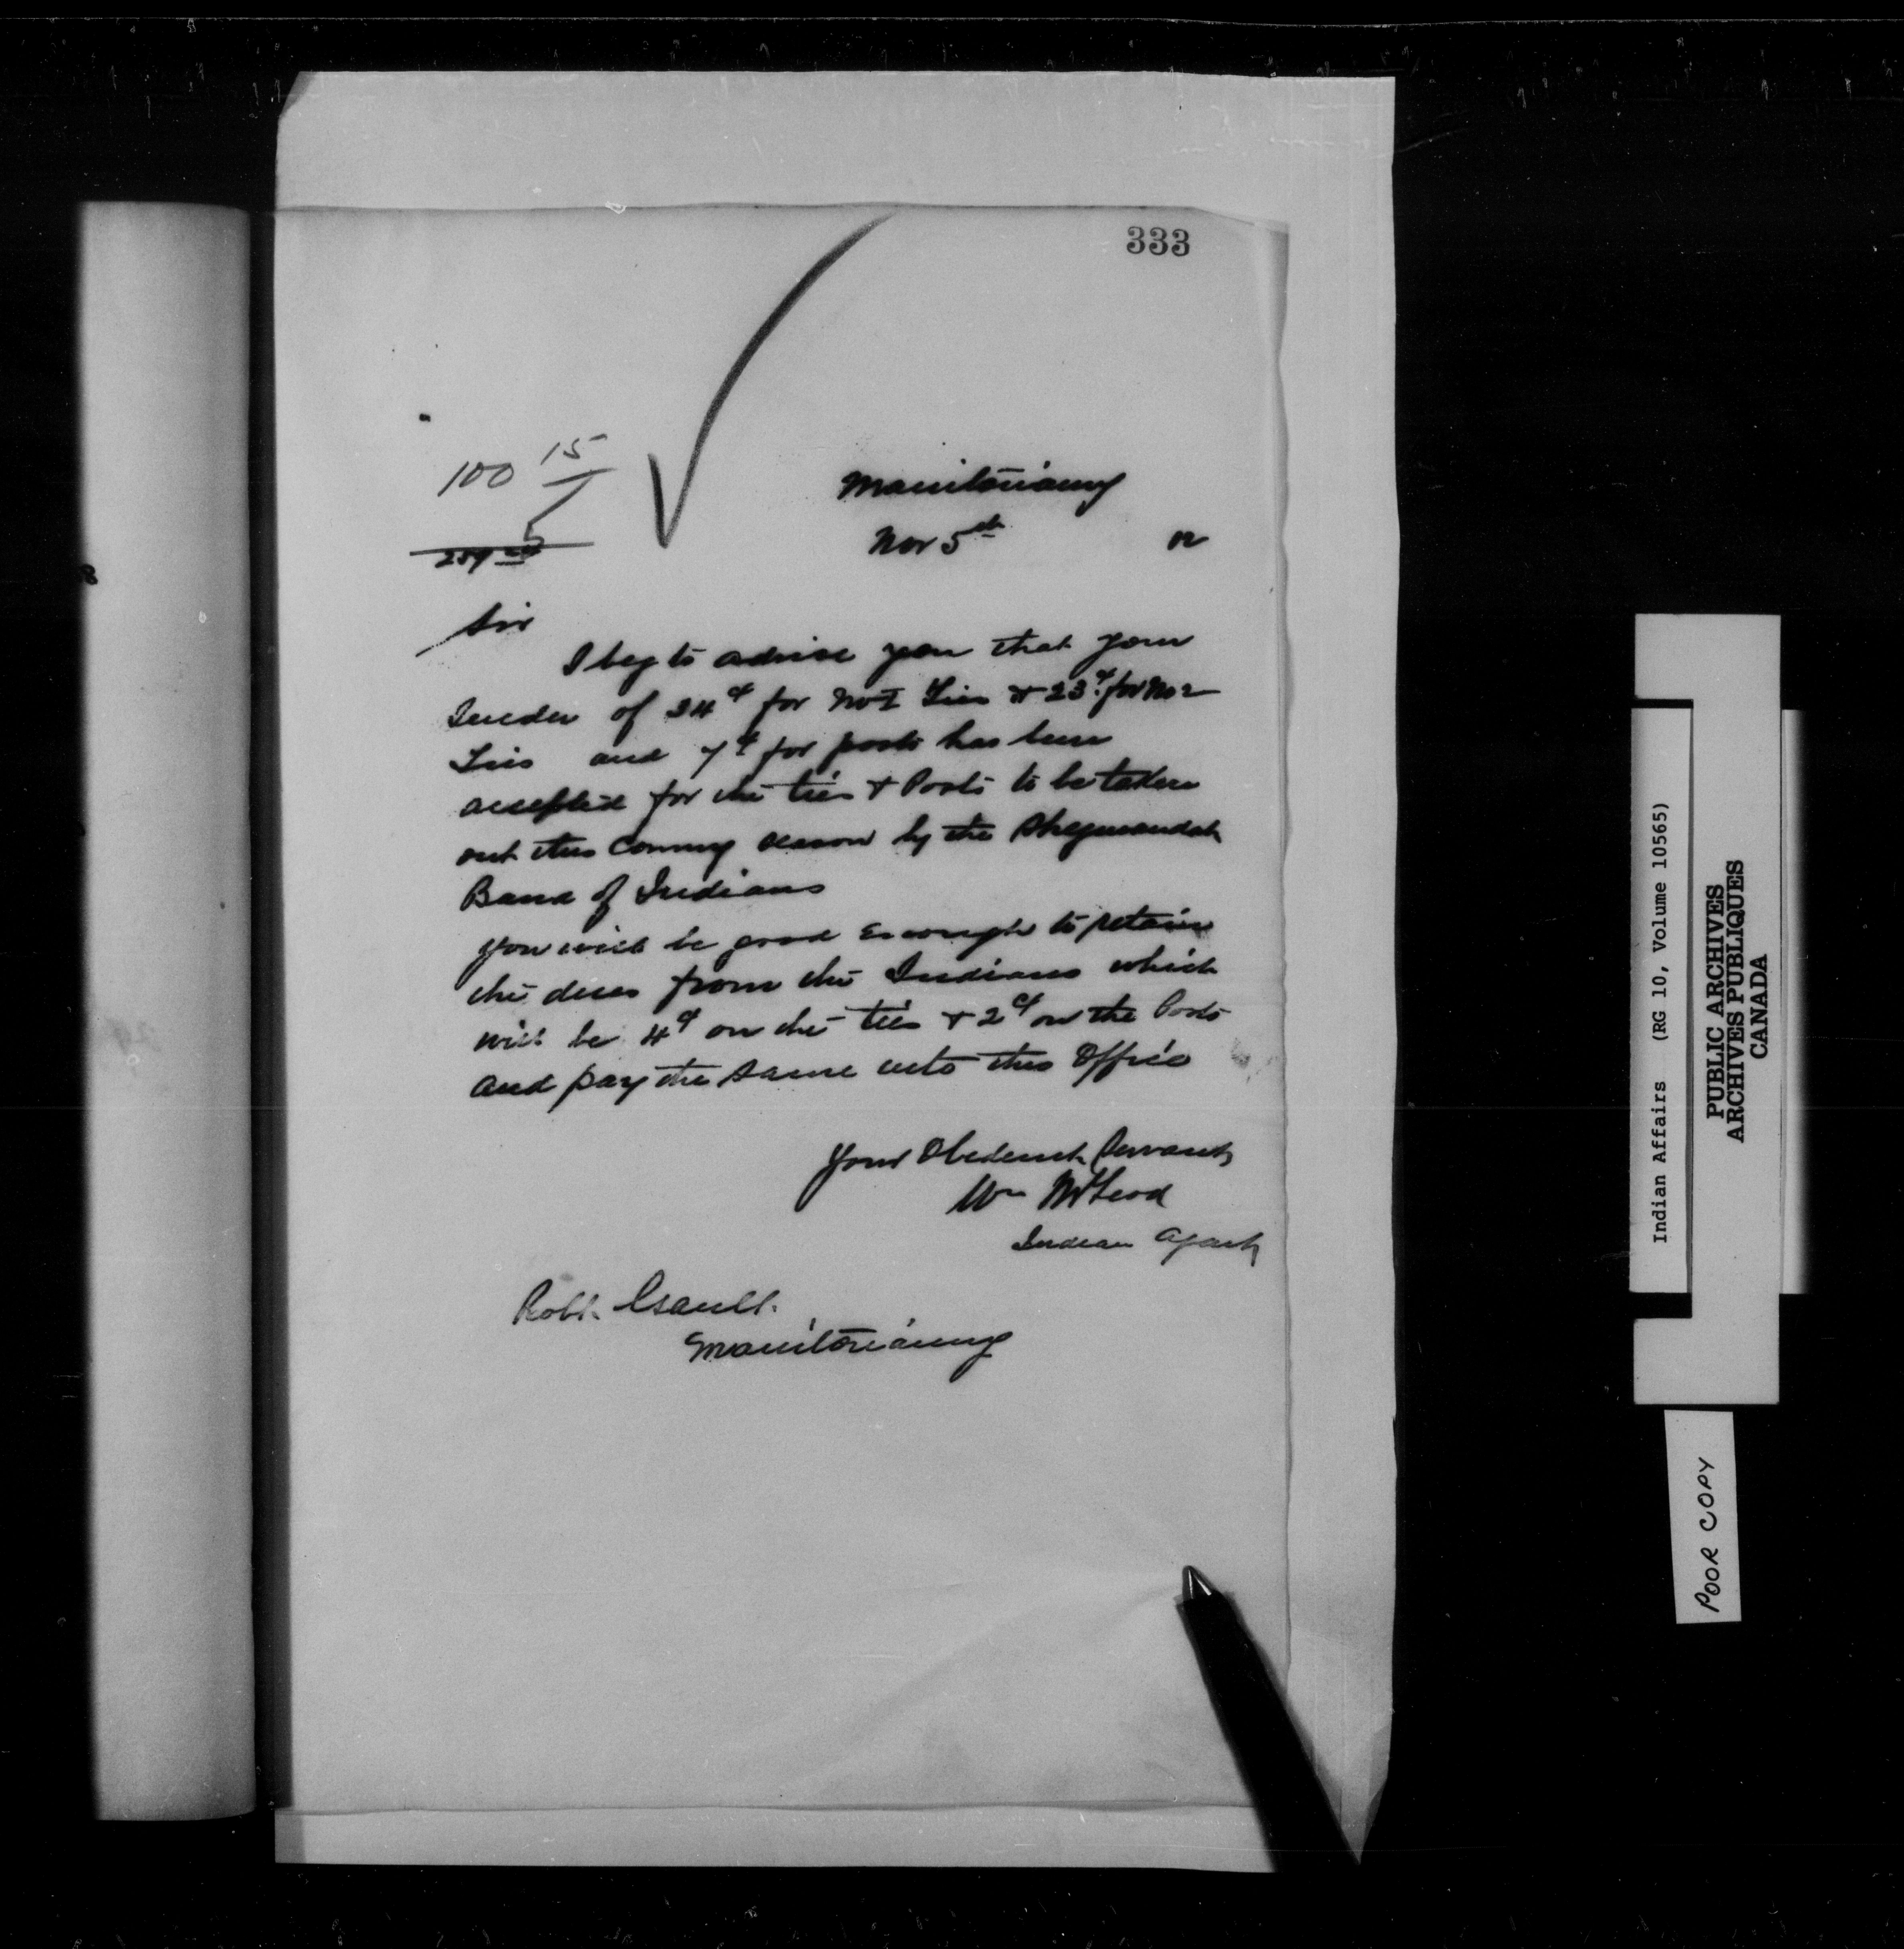 333
100 15
Manitowaning
Nov 5th 02
Sir
I beg to advise you that your
Tender of 24¢ for No 1 Ties & 23¢ for No 2
Ties and 7¢ for posts has been
accepted for the ties & Posts to be taken
out this Coming season by the Sheguiandah
Band of Indians
you will be good Enough to retain
the dues from the Indians which
will be 4¢ on the ties & 2¢ on the Posts
and pay the same into this Office
Your Obedient Servant
Wm McLeod
Indian Agent
Robt. Gault.
Manitowaning
Indian Affairs (RG 10, Volume 10565)
PUBLIC ARCHIVES
ARCHIVES PUBLIQUES
CANADA
POOR COPY